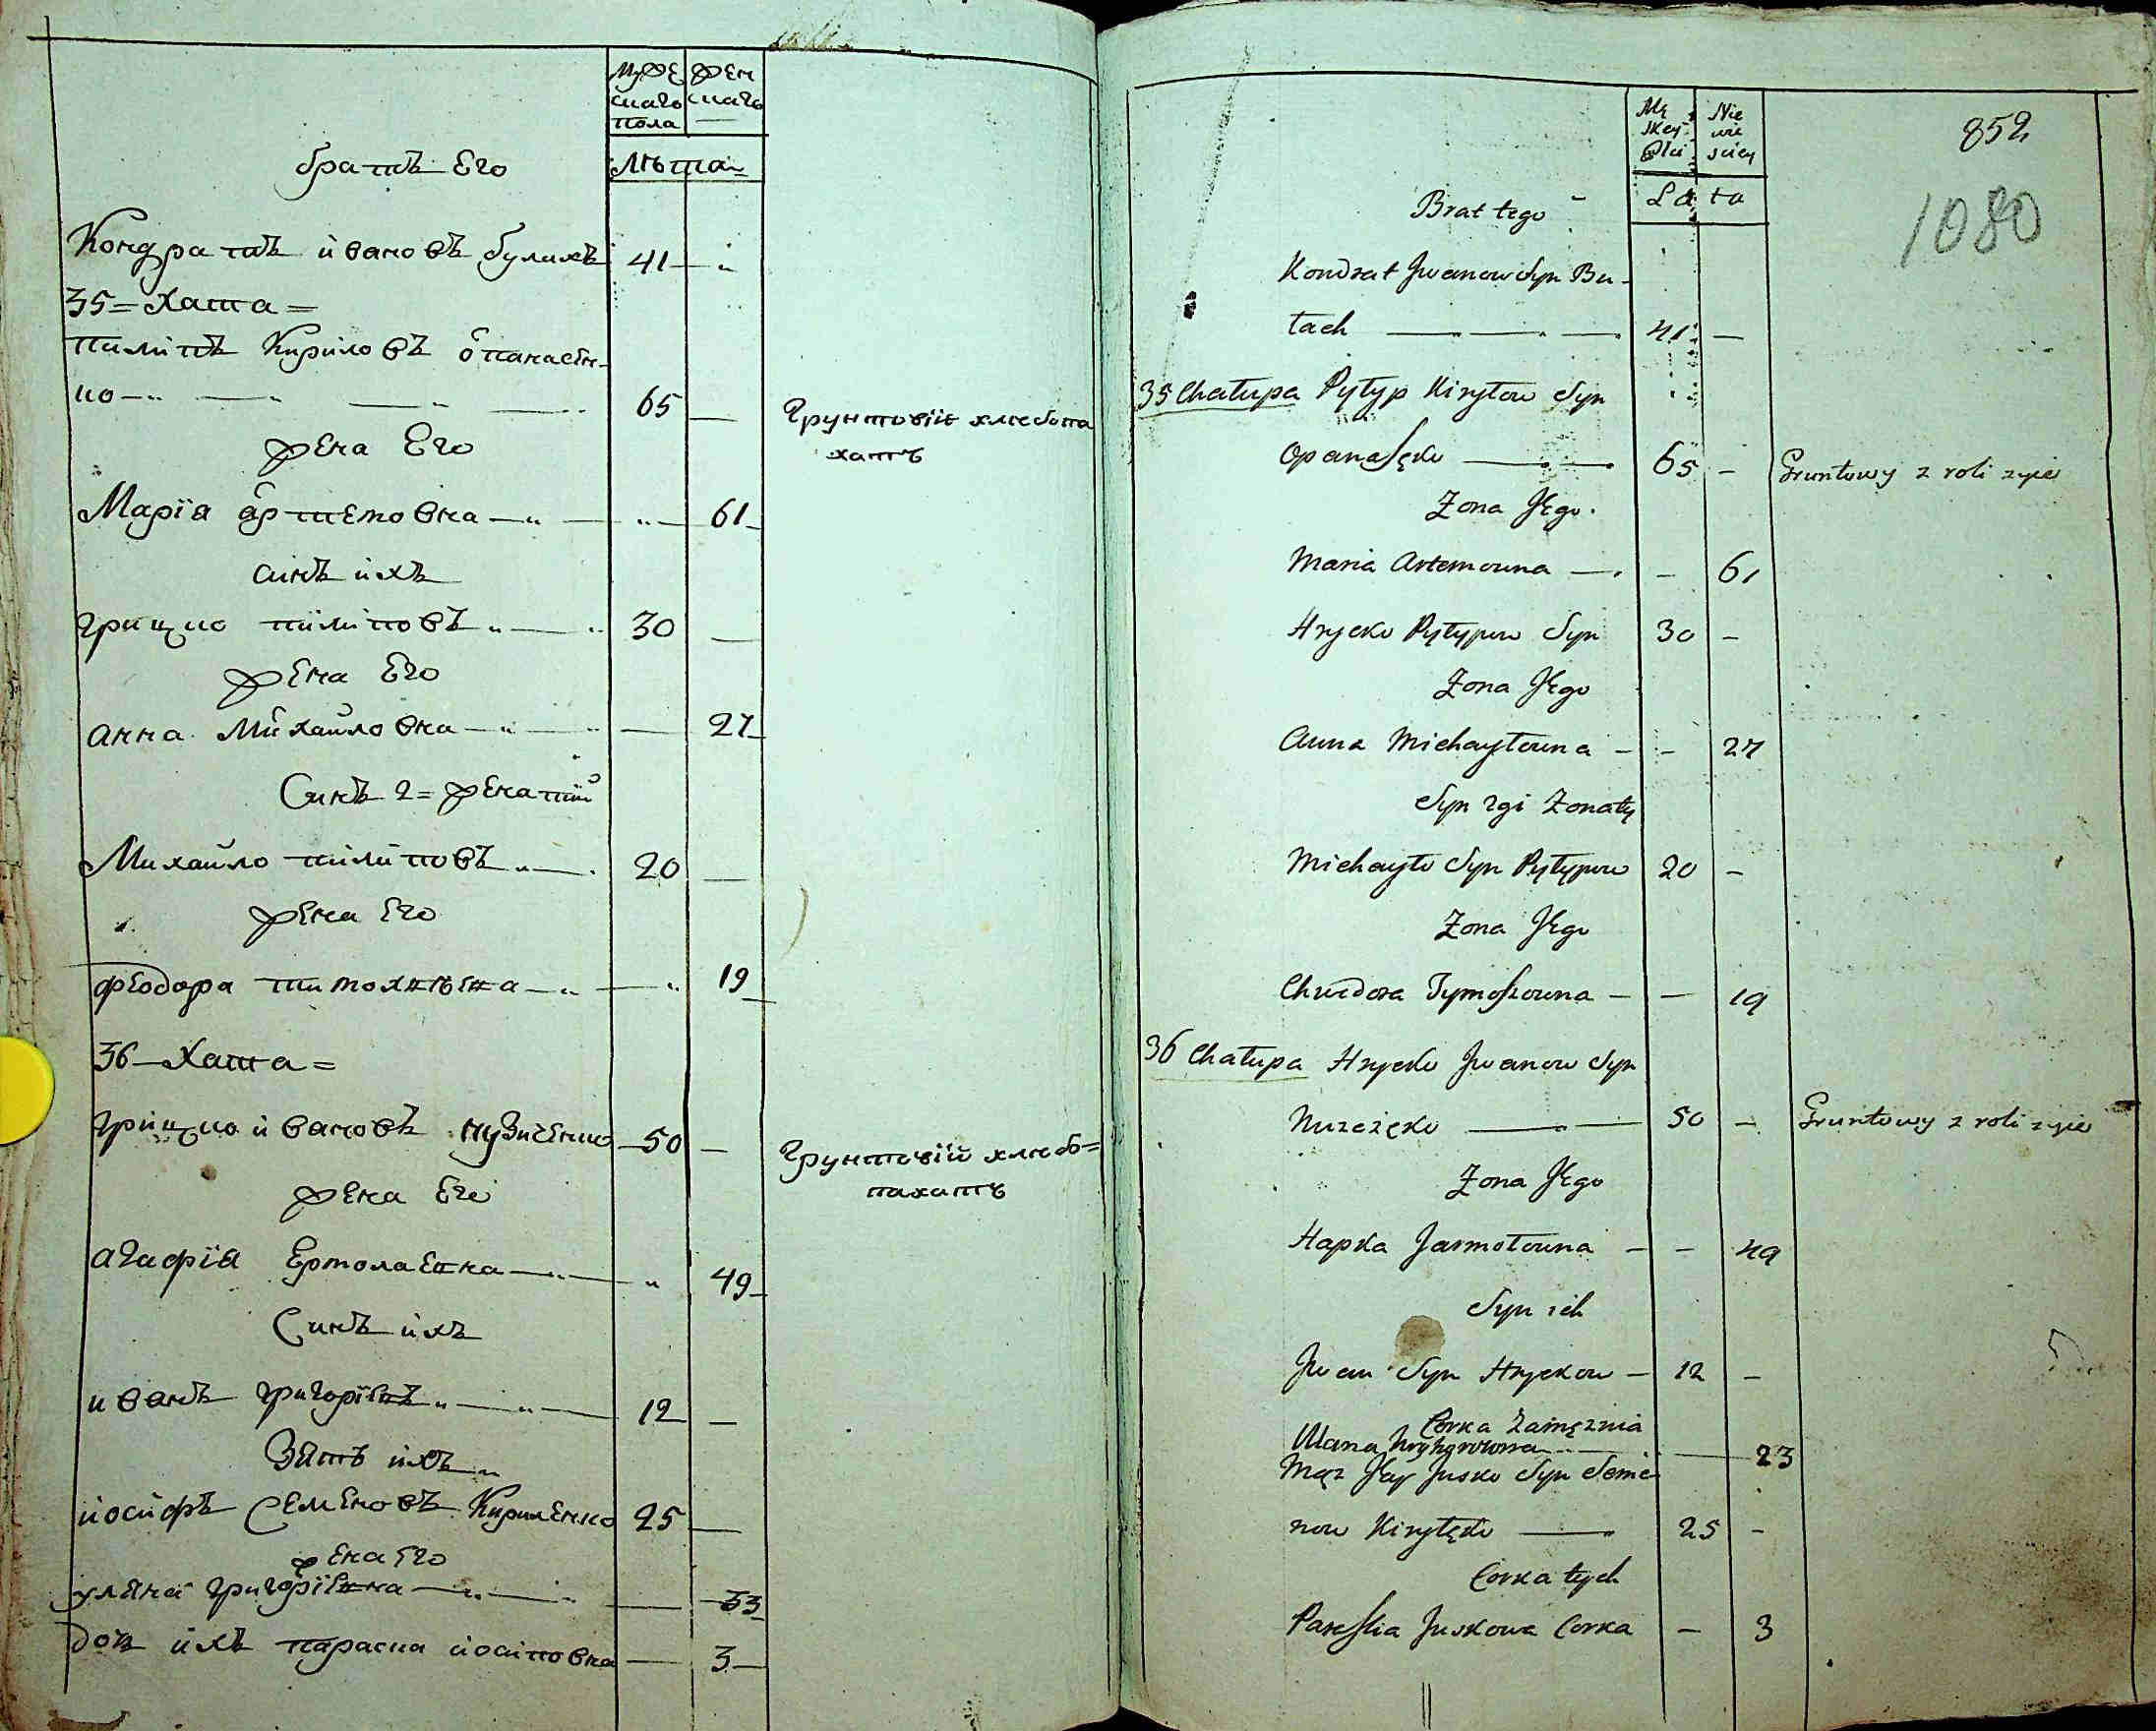 Муже Жен
скаго скаго
пола
Лѣта
братъ Его
Кондратъ ивановъ булахъ 41
35 = Хата =
пилипъ Кириловъ опанасен-
ко 65
Грунтовій хлебопа
хатъ
жена Его
Марїа артемовна 61
синъ ихъ
грицко пилиповъ 30
жена Его
анна Михайловна 27
Синъ 2 = женатий
Михайло пилиповъ 20
жена Его
феодора тимох 19
36 – Хата =
грицко ивановъ музиченко 50
Грунтовій хлебо=
пахатъ
жена Его
агафїа Ермолаевна 49
Синъ ихъ
иванъ григорїевъ 12
Зять ихъ
иосифъ Семеновъ Кириленко 25
жена Его
уляна григорїевна 33
дочь ихъ параска иосиповна 3
852
1080
Mę Nie
skey wie
Płci sciey
Lata
Brat tego
Kondrat Jwanow Syn Bu-
łach 41 –
35 Chałupa Pyłyp Kiryłow Syn
Opanasęko 65 – Gruntowy z roli zyie
Zona Jego
Maria Artemowna – 61
Hrycko Pyłypow Syn 30 –
Zona Jego
Anna Michayłowna – 27
Syn 2gi Zonaty
Michayło Syn Pyłypow 20 –
Zona Jego
Chwedora Tymoszowna – 19
36 Chałupa Hrycko Jwanow Syn
Muzeżęko 50 – Gruntowy z roli zyie
Zona Jego
Hapka Jarmołowna – 49
Syn ich
Jwan Syn Hryckow – 12 –
Corka Zamęznia
Ulana hryhorowna 23
Mąz Jey Jusko Syn Seme
now Kiryłęko 25 –
Corka tych
Paraskia Juskowa Corka – 3